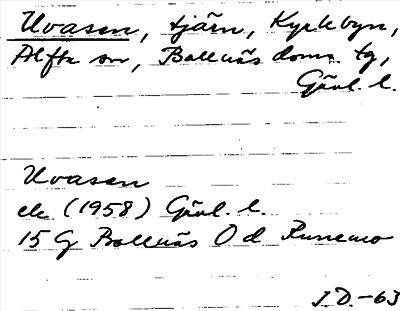 Uvasen, tjärn, Kyrkbyn,
Alfta sn, Bollnäs doms. tg,
Gävl. l.
Uvasen
ek (1958) Gävl. l.
15 G Bollnäs O d Runemo
I.D.-63